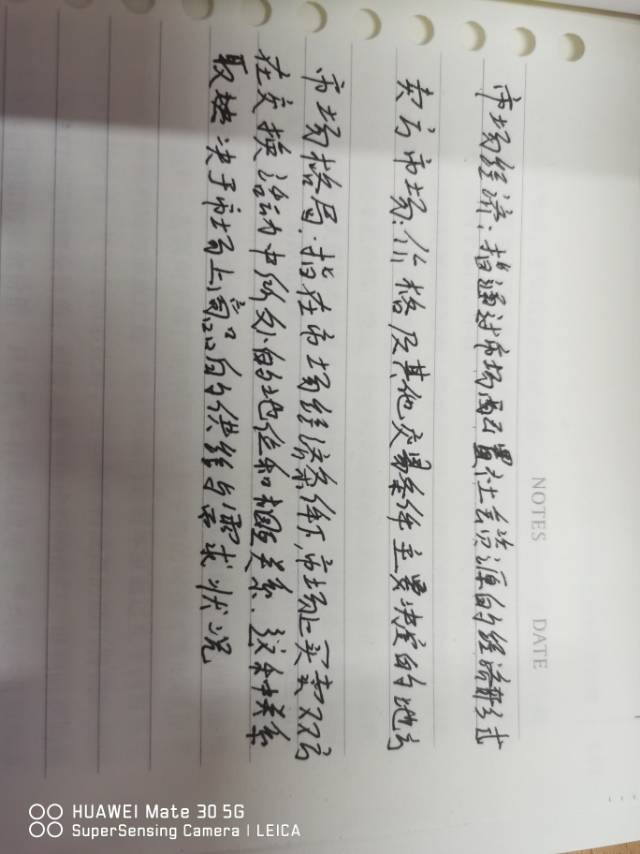 NOTES DATE
市场经济:指通过市场配置社会资源的经济形式
卖方市场:价格及其他交易条件主要决定的地方
市场格局:指在市场经济条件下,市场上买卖双方
在交换活动中所处的地位和相互关系、这种关系
取决于市场上商品的供给与需求状况
HUAWEI Mate 30 5G
SuperSensing Camera | LEICA